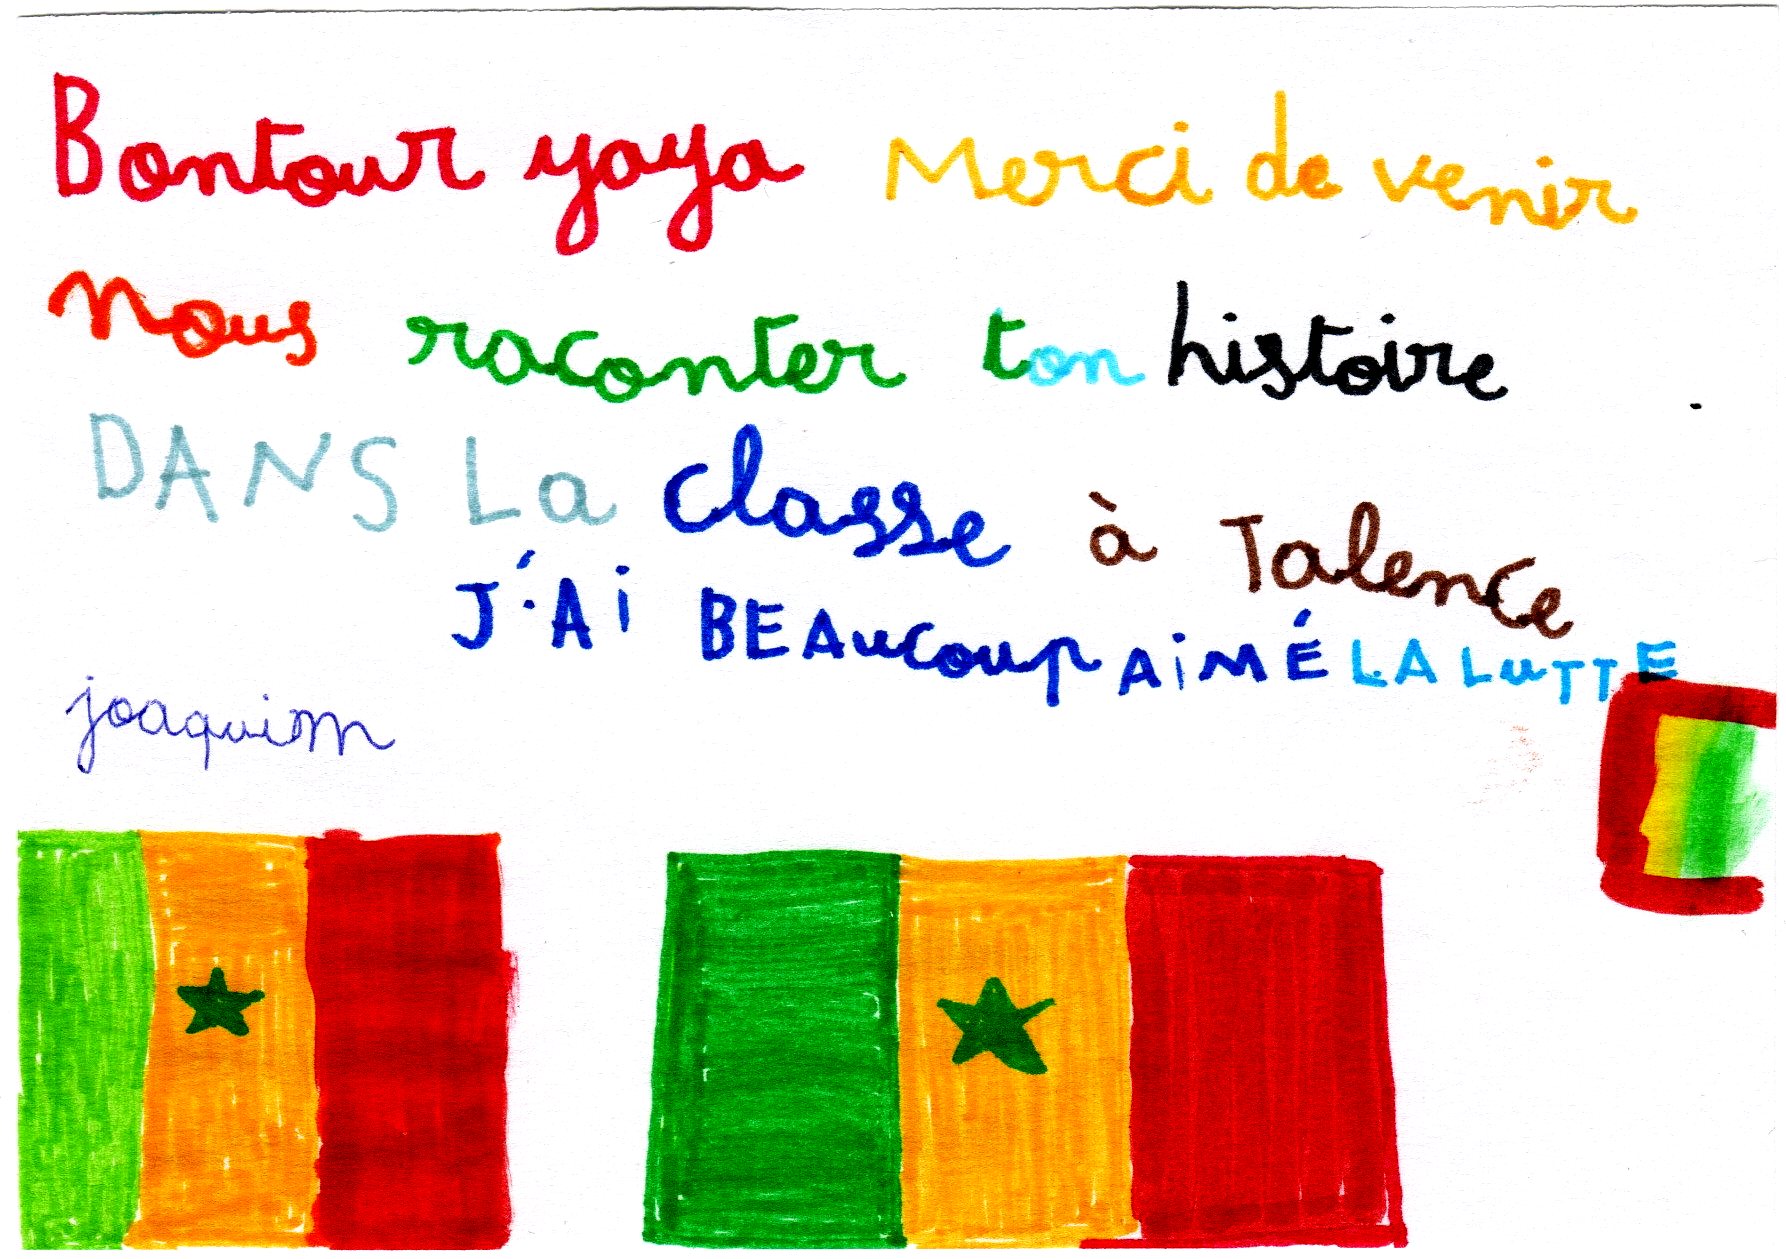 Bontour yaya Merci de venir
nous raconter ton histoire
DANS La classe à Talence
J'Ai BEAucoup AiMÉ LA LuTTE
joaquim